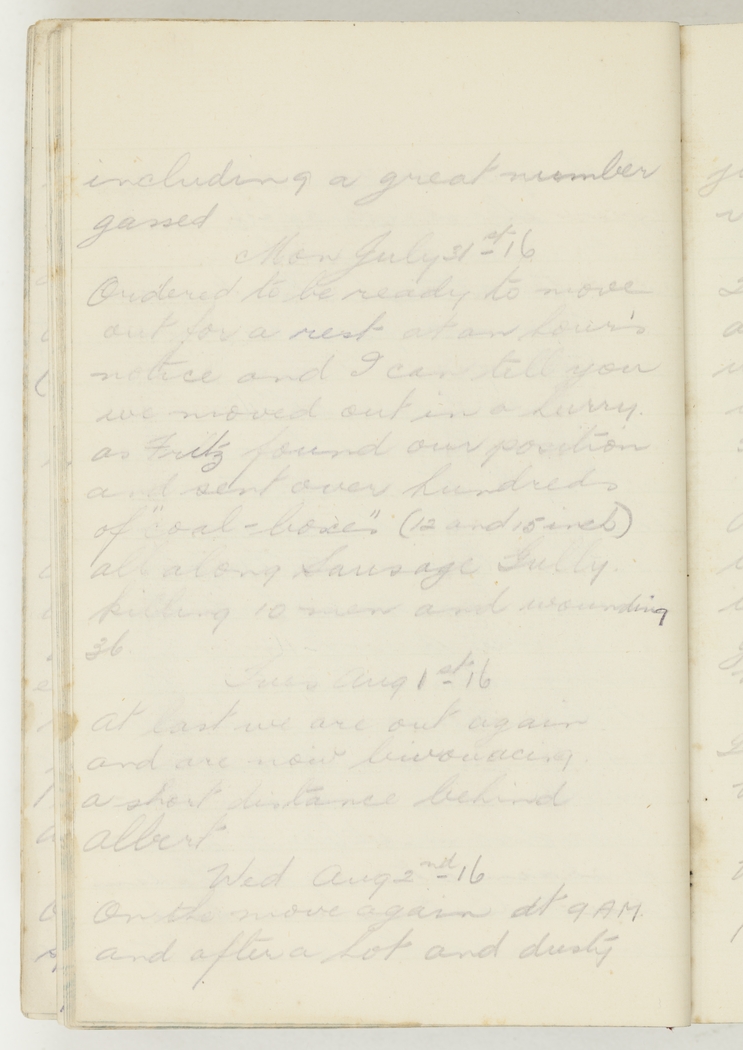 including a great number
gassed
Mon July 31st 16
Ordered to be ready to move
out for a rest at an hour's
notice and I can tell you
we moved out in a hurry.
as Fritz found our position
and sent over hundreds
of "coal-boxes" (12 and 15 inch)
all along Sausage Gully.
killing 10 men and wounding
36
Tues Aug 1st 16
At last we are out again
and are now bivouacing
a short distance behind
Albert
Wed Aug 2nd 16
On the move again at 9 AM.
and after a hot and dusty